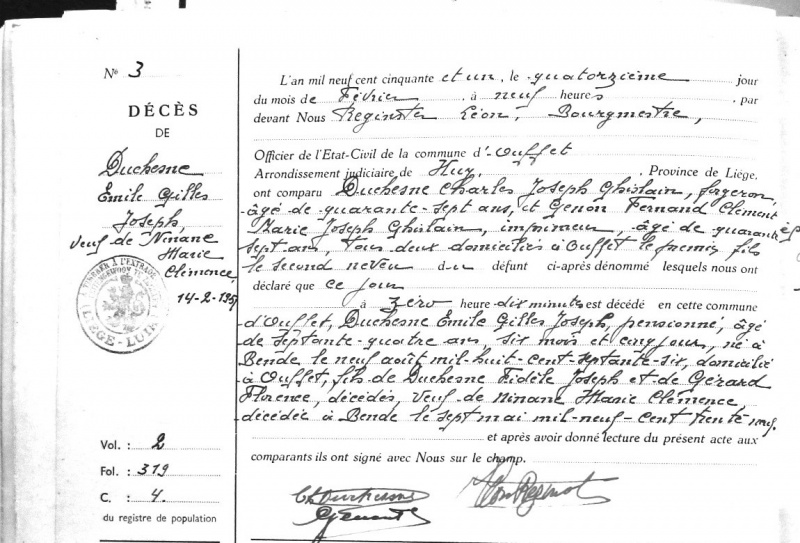 N° 3
DÉCÈS
DE
Duchesne
Emile Gilles
Joseph,
Veuf de Ninane
Marie
Clémence
14-2-1951
Vol. : 2
Fol. : 319
C. : 4
du registre de population
L'an mil neuf cent cinquante et un, le quatorzième jour
du mois de Février à neuf heures, par
devant Nous Reginster Léon, Bourgmestre,
Officier de l'Etat-Civil de la commune d'Ouffet
Arrondissement judiciaire de Huy. Province de Liège.
ont comparu Duchesne Charles Joseph Ghislain, forgeron,
âgé de quarante-sept ans, et Genon Fernand Clément
Marie Joseph Ghislain, imprimeur, âgé de quarante
sept ans, tous deux domiciliés à Ouffet le premier fils
le second neveu du défunt ci-après dénommé lesquels nous ont
déclaré que ce jour
à zéro heure dix minutes est décédé en cette commune
d'Ouffet, Duchesne Emile Gilles Joseph, pensionné, âgé
de septante-quatre ans, six mois et cinq jours, né à
Bende le neuf août mil-huit-cent-septante-six, domicilié
à Ouffet, fils de Duchesne Fidèle Joseph et de Gérard
Florence, décédés, Veuf de Ninane Marie Clémence
décédée à Bende le sept mai mil-neuf-cent trente neuf.
et après avoir donné lecture du présent acte aux
comparants ils ont signé avec Nous sur le champ.
Ch Duchesne
Genon